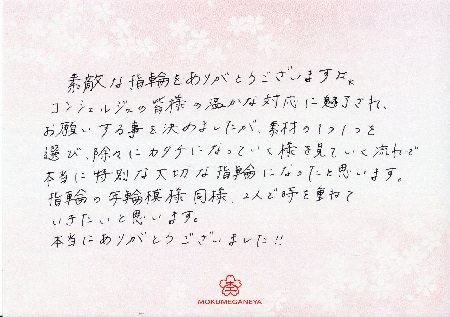 素敵な指輪をありがとうございます☆
コンシェルジュの皆様の温かな対応に魅了され、
お願いする事を決めましたが、素材の1つ1つを
選び、除々にカタチになっていく様を見ていく流れで
本当に特別な大切な指輪になったと思います。
指輪の年輪模様同様、2人で時を重ねて
いきたいと思います。
本当にありがとうございました!!
MOKUMEGANEYA